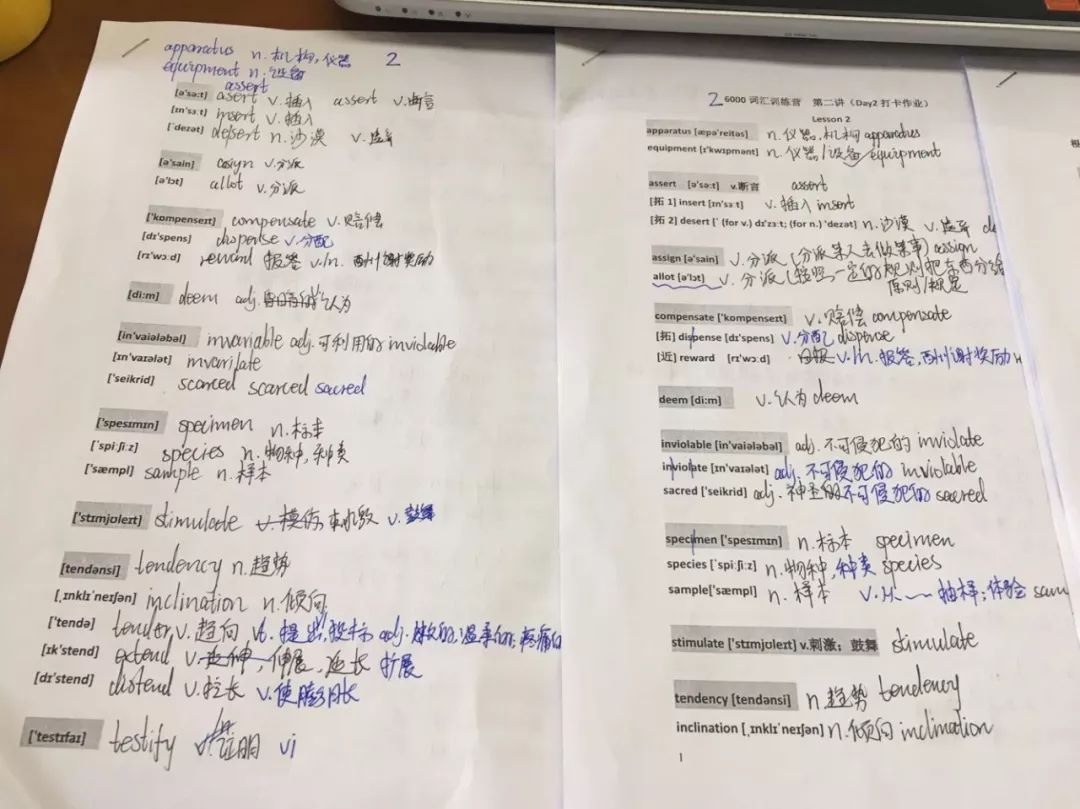 apparatus n. 机构, 仪器 2
equipment n. 设备
assert
[ə'sə:t] asert v. 插入 assert v. 断言
[ɪn'sɜ:t] insert v. 插入
['dezət] desert n. 沙漠 v. 遗弃
[ə'sain] asign v. 分派
[ə'lɒt] allot v. 分派
['kɒmpenseɪt] compensate v. 赔偿
[dɪ'spens] dispense v. 分配
[rɪ'wɔ:d] reward 报答 v./n. 酬谢奖励
[di:m] deem adj. 认为
[in'vaiələbəl] invariable adj. 可利用的 inviolable
[ɪn'vaɪələt] invarilate
['seikrid] scarced scarced sacred
['spesɪmɪn] specimen n. 标本
['spiːʃiːz] species n. 物种, 种类
['sæmpl] sample n. 样本
['stɪmjʊleɪt] stimulate v. 模仿, 刺激 v. 鼓舞
[tendənsi] tendency n. 趋势
[ˌɪnklɪ'neɪʃən] inclination n. 倾向
['tendə] tender v. 趋向, vt. 提出, 投标 adj. 嫩的, 温柔的, 疼痛的
[ɪk'stend] extend v. 延伸, 伸展, 延长 扩展
[dɪ'stend] distend v. 拉长 v. 使膨胀
['testɪfaɪ] testify v. 证明 vi
2 6000 词汇训练营 第二讲（Day2 打卡作业）
Lesson 2
apparatus [æpə'reitəs] n. 仪器, 机构 apparatus
equipment [ɪ'kwɪpmənt] n. 仪器/设备 equipment
assert [ə'sə:t] v.断言 assert
[拓 1] insert [ɪn'sɜ:t] v. 插入 insert
[拓 2] desert [' (for v.) dɪ'zɜ:t; (for n.) 'dezət] n. 沙漠 v. 遗弃 de
assign [ə'sain] v. 分派 (分派某人去做某事) assign
allot [ə'lɒt] v. 分派 (按照一定的规则把东西分给
原则/规定
compensate ['kɒmpenseɪt] v. 赔偿 compensate
[拓] dispense [dɪ'spens] v. 分配 dispense
[近] reward [rɪ'wɔ:d] v./n. 报答, 酬谢奖励
deem [di:m] v. 认为 deem
inviolable [in'vaiələbəl] adj. 不可侵犯的 inviolate
inviolate [ɪn'vaɪələt] adj. 不可侵犯的 inviolable
sacred ['seikrid] adj. 神圣的不可侵犯的 sacred
specimen ['spesɪmɪn] n. 标本 specimen
species ['spiːʃiːz] n. 物种, 种类 species
sample['sæmpl] n. 样本 v. 从～ 抽样; 体验 sam
stimulate ['stɪmjʊleɪt] v.刺激；鼓舞 stimulate
tendency [tendənsi] n. 趋势 tendency
inclination [ˌɪnklɪ'neɪʃən] n. 倾向 inclination
1